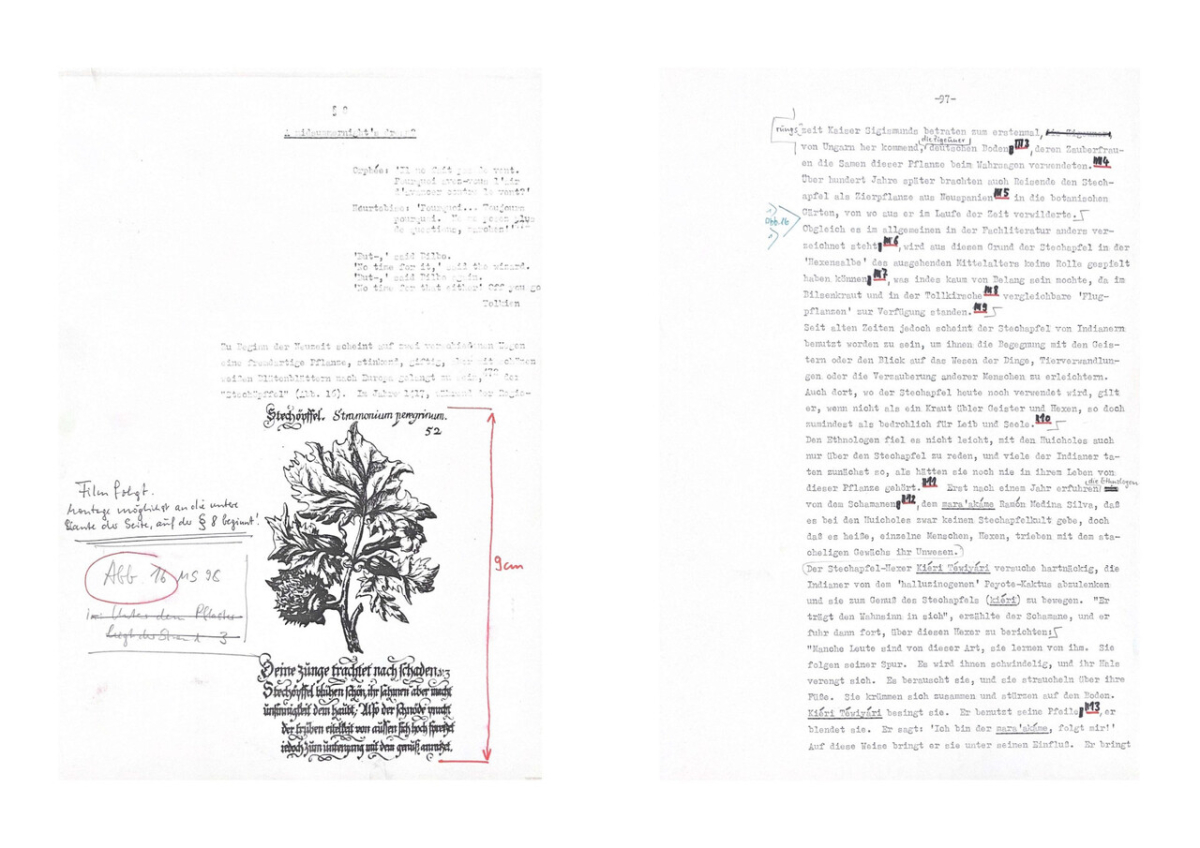 § 8
A midsummernight's dream?
Orphée: 'Il ne fait pas de vent.
Pourquoi avez-vous l'air
d'avancer contre le vent?'
Heurtebise: 'Pourquoi... Toujours
pourquoi. Ne me posez plus
de questions, marchez!'
'But-,' said Bilbo.
'No time for it,' said the wizard.
'But-,' said Bilbo again.
'No time for that either! Off you go
Tolkien
Zu Beginn der Neuzeit scheint auf zwei verschiedenen Wegen
eine fremdartige Pflanze, stinkend, giftig, aber mit schönen
weißen Blütenblättern nach Europa gelangt zu sein, der
"Stechöpffel" (Abb. 16). Im Jahre 1417, während der Regie-
Stechöpffel. Stramonium peregrinum.
52
Film folgt.
Montage möglichst an die untere
Kante der Seite, auf der § 8 beginnt!
Abb. 16 MS 96
Unter dem Pflaster
liegt der Strand 3
9cm
Deine zunge trachtet nach schaden
Stechöpffel blühen schön, ihr sahmen aber macht
unsinnigkeit dem haubt; Also der schnöde pracht
der trüben eitelkeit von aussen sich hoch spreizet
iedoch zum untergang mit dem genuß anraitzet.
-97-
rungszeit Kaiser Sigismunds betraten zum erstenmal, die Zigeuner,
von Ungarn her kommend, die Zigeuner deutschen Boden, M3 deren Zauberfrau-
en die Samen dieser Pflanze beim Wahrsagen verwendeten. M4
Über hundert Jahre später brachten auch Reisende den Stech-
apfel als Zierpflanze aus Neuspanien M5 in die botanischen
Abb. 16
Gärten, von wo aus er im Laufe der Zeit verwilderte.
Obgleich es im allgemeinen in der Fachliteratur anders ver-
zeichnet steht, M6 wird aus diesem Grund der Stechapfel in der
'Hexensalbe' des ausgehenden Mittelalters keine Rolle gespielt
haben können, M7 was indes kaum von Belang sein mochte, da im
Bilsenkraut und in der Tollkirsche M8 vergleichbare 'Flug-
pflanzen' zur Verfügung standen. M9
Seit alten Zeiten jedoch scheint der Stechapfel von Indianern
benutzt worden zu sein, um ihnen die Begegnung mit den Geis-
tern oder den Blick auf das Wesen der Dinge, Tierverwandlun-
gen oder die Verzauberung anderer Menschen zu erleichtern.
Auch dort, wo der Stechapfel heute noch verwendet wird, gilt
er, wenn nicht als ein Kraut übler Geister und Hexen, so doch
zumindest als bedrohlich für Leib und Seele. M10
Den Ethnologen fiel es nicht leicht, mit den Huicholes auch
nur über den Stechapfel zu reden, und viele der Indianer ta-
ten zunächst so, als hätten sie noch nie in ihrem Leben von
dieser Pflanze gehört. M11 Erst nach einem Jahr erfuhren die Ethnologen
von dem Schamanen, M12 dem mara'akáme Ramón Medina Silva, daß
es bei den Huicholes zwar keinen Stechapfelkult gebe, doch
daß es heiße, einzelne Menschen, Hexen, trieben mit dem sta-
cheligen Gewächs ihr Unwesen.
Der Stechapfel-Hexer Kiéri Téwiyári versuche hartnäckig, die
Indianer von dem 'halluzinogenen' Peyote-Kaktus abzulenken
und sie zum Genuß des Stechapfels (kiéri) zu bewegen. "Er
trägt den Wahnsinn in sich", erzählte der Schamane, und er
fuhr dann fort, über diesen Hexer zu berichten:
"Manche Leute sind von dieser Art, sie lernen von ihm. Sie
folgen seiner Spur. Es wird ihnen schwindelig, und ihr Hals
verengt sich. Es berauscht sie, und sie straucheln über ihre
Füße. Sie krümmen sich zusammen und stürzen auf den Boden.
Kiéri Téwiyári besingt sie. Er benutzt seine Pfeile, M13 er
blendet sie. Er sagt: 'Ich bin der mara'akáme, folgt mir!'
Auf diese Weise bringt er sie unter seinen Einfluß. Er bringt